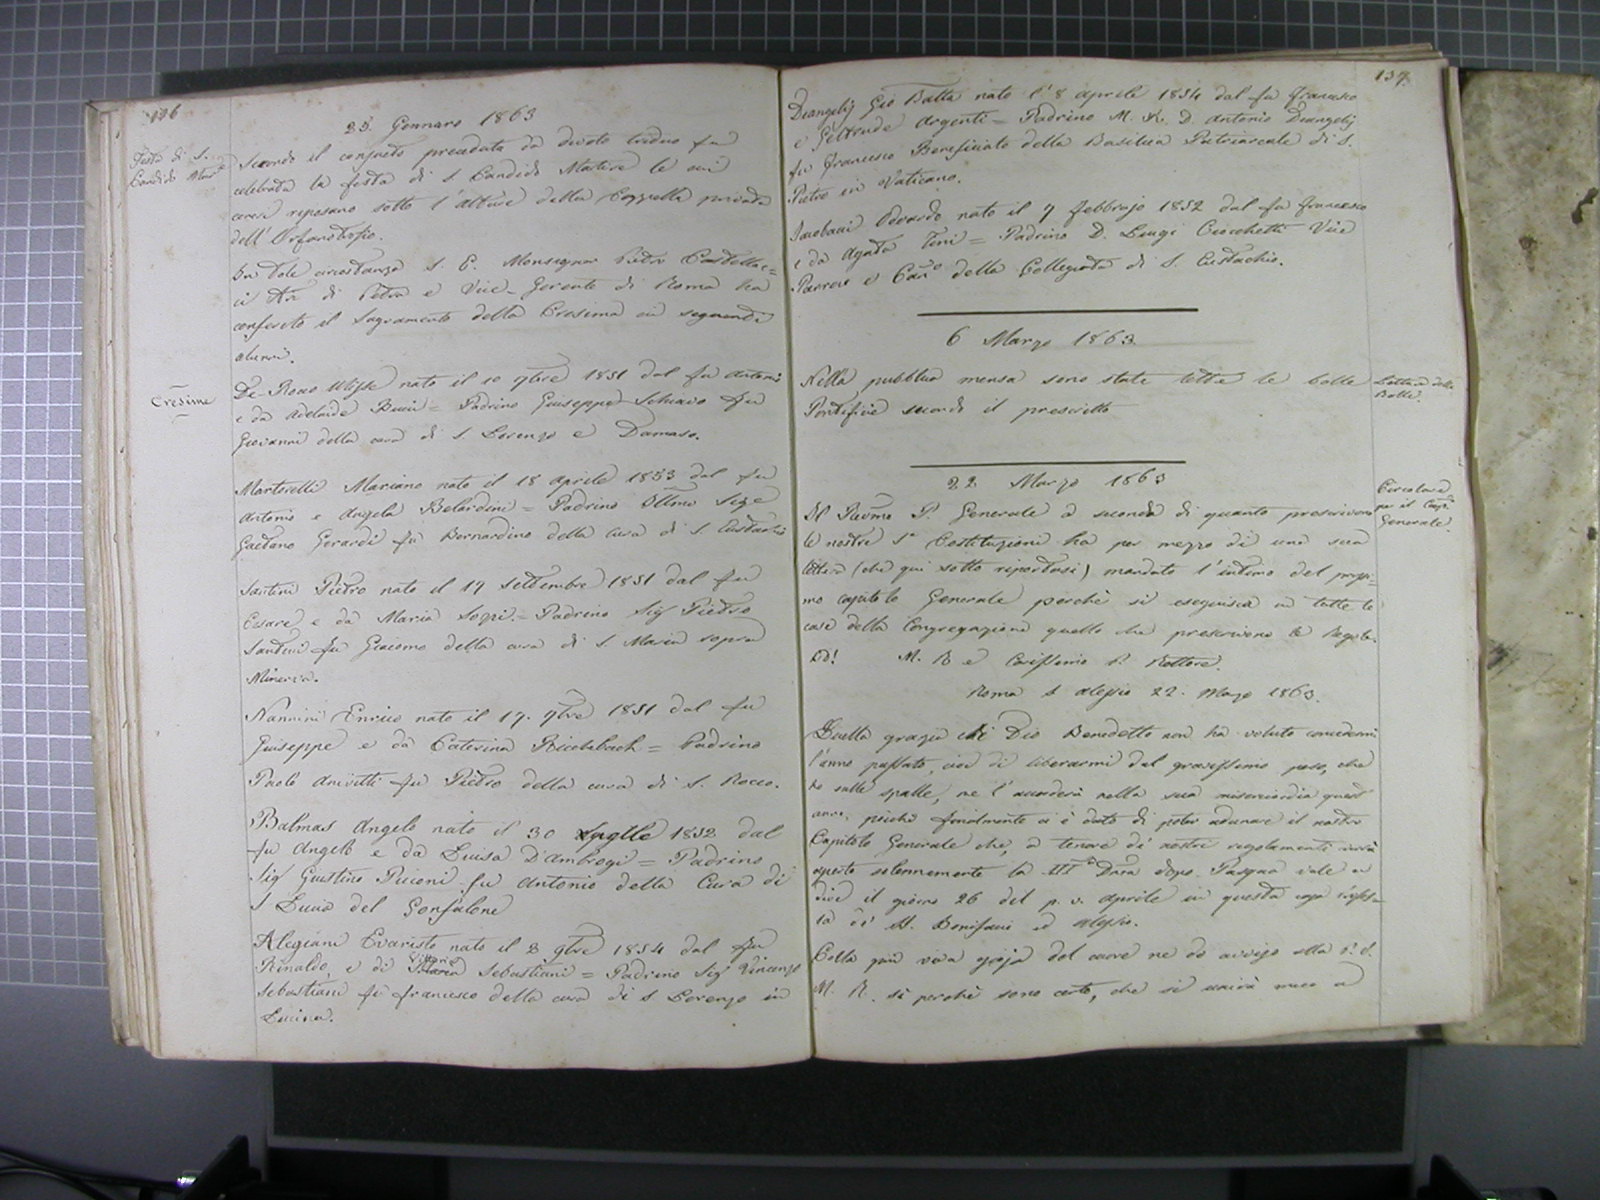 136
25. Gennaro 1863
Festa di S.
Candido Mar.e
Secondo il consueto preceduta da divoto triduo fu
celebrata la festa di S. Candido Martire le cui
ceneri riposano sotto l'altare della Cappella privata
dell'Orfanotrofio.
In tale circostanza S. E. Monsignor Pietro Castellac=
ci Arc. di Petra e Vice-Gerente di Roma ha
conferito il Sagramento della Cresima ai seguenti
alunni.
Cresime
De Rossi Ulisse nato il 10 9bre 1851 dal fu Antonio
e da Adelaide Bucci = Padrino Giuseppe Schiavo fu
Giovanni della cura di S. Lorenzo e Damaso.
Martorelli Mariano nato il 18 aprile 1853 dal fu
Antonio e Angela Belardini = Padrino Illmo Sig.e
Gaetano Gerardi fu Bernardino della cura di S. Eustachio
Santini Pietro nato il 17 Settembre 1851 dal fu
Cesare e da Maria Sopi. = Padrino Sig Pietro
Santini fu Giacomo della cura di S. Maria sopra
Minerva.
Nannini Enrico nato il 17. 9bre 1851 dal fu
Giuseppe e da Caterina = Padrino
Paolo Anivitti fu Pietro della cura di S. Rocco.
Balmas Angelo nato il 30 1852 dal
fu Angelo e da Luisa D'Ambrogi = Padrino
Sig Giustino Piccioni fu Antonio della Cura di
S Lucia del Gonfalone
Alegiani Evaristo nato il 2 9bre 1854 dal fu
Rinaldo, e di Vittoria Sebastiani = Padrino Sig Vincenzo
Sebastiani fu Francesco della cura di S Lorenzo in
Lucina.
137.
Deangelis Gio Batta nato l'8 aprile 1854 dal fu Francesco
e Geltrude Argenti = Padrino M. R. D. Antonio Deangelis
fu Francesco Beneficiato della Basilica Patriarcale di S.
Pietro in Vaticano.
Jacobacci Edoardo nato il 7 febbrajo 1852 dal fu Francesco
e da Agata Tini = Padrino D. Luigi Ciocchetti Vice
Parroco e Can.co della Collegiata di S. Eustachio.
6 Marzo 1863
Nella pubblica mensa sono state lette le bolle
Pontificie secondo il prescritto
Lettura delle
Bolle.
22 Marzo 1863
Circolare
per il Cap.
Generale.
Il Revmo P. Generale a seconda di quanto prescrivono
le nostre S.e Costituzioni ha per mezzo di una sua
lettera (che qui sotto riportasi) mandato l'intimo del prossi-
mo capitolo Generale perchè si eseguisca in tutte le
case della Congregazione quello che prescrivono le Regole.
M. R. e Carissimo P. Rettore.
Roma S Alessio 22. Marzo 1863.
Quella grazia che Dio Benedetto non ha voluto concedermi
l'anno passato, cioè di liberarmi dal gravissimo peso, che
ho sulle spalle, me l'accorderà nella sua misericordia quest'
anno, poichè finalmente ci è dato di poter adunare il nostro
Capitolo Generale che, a tenore de' nostri regolamenti verrà
aperto solennemente la III.a Dnca dopo Pasqua vale a
dire il giorno 26 del p. v. Aprile in questa casa
di SS. Bonifacio ed Alessio.
Colla più viva gioja del cuore ne do avviso alla P. S.
M. R. sì perchè sono certo, che si unirà meco a